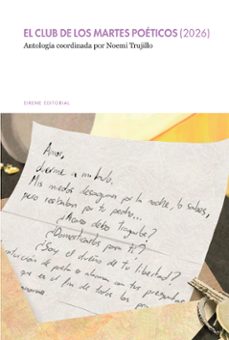 EL CLUB DE LOS MARTES POÉTICOS (2026)
Antología coordinada por Noemí Trujillo
SIRENE EDITORIAL
Amor,
duerme a mi lado,
Mis miedos desaguan por la noche, lo sabes,
pero resbalan por tu pecho...
¿Acaso debo Tragarte?
¿Domesticarla para ti?
¿Soy el dueño de tu libertad?
de poeta o alumno con tus preguntas
que es el fin de todos los